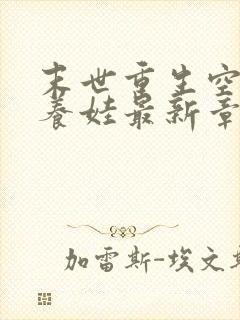 末世重生空
养娃最新章
加雷斯-埃文斯